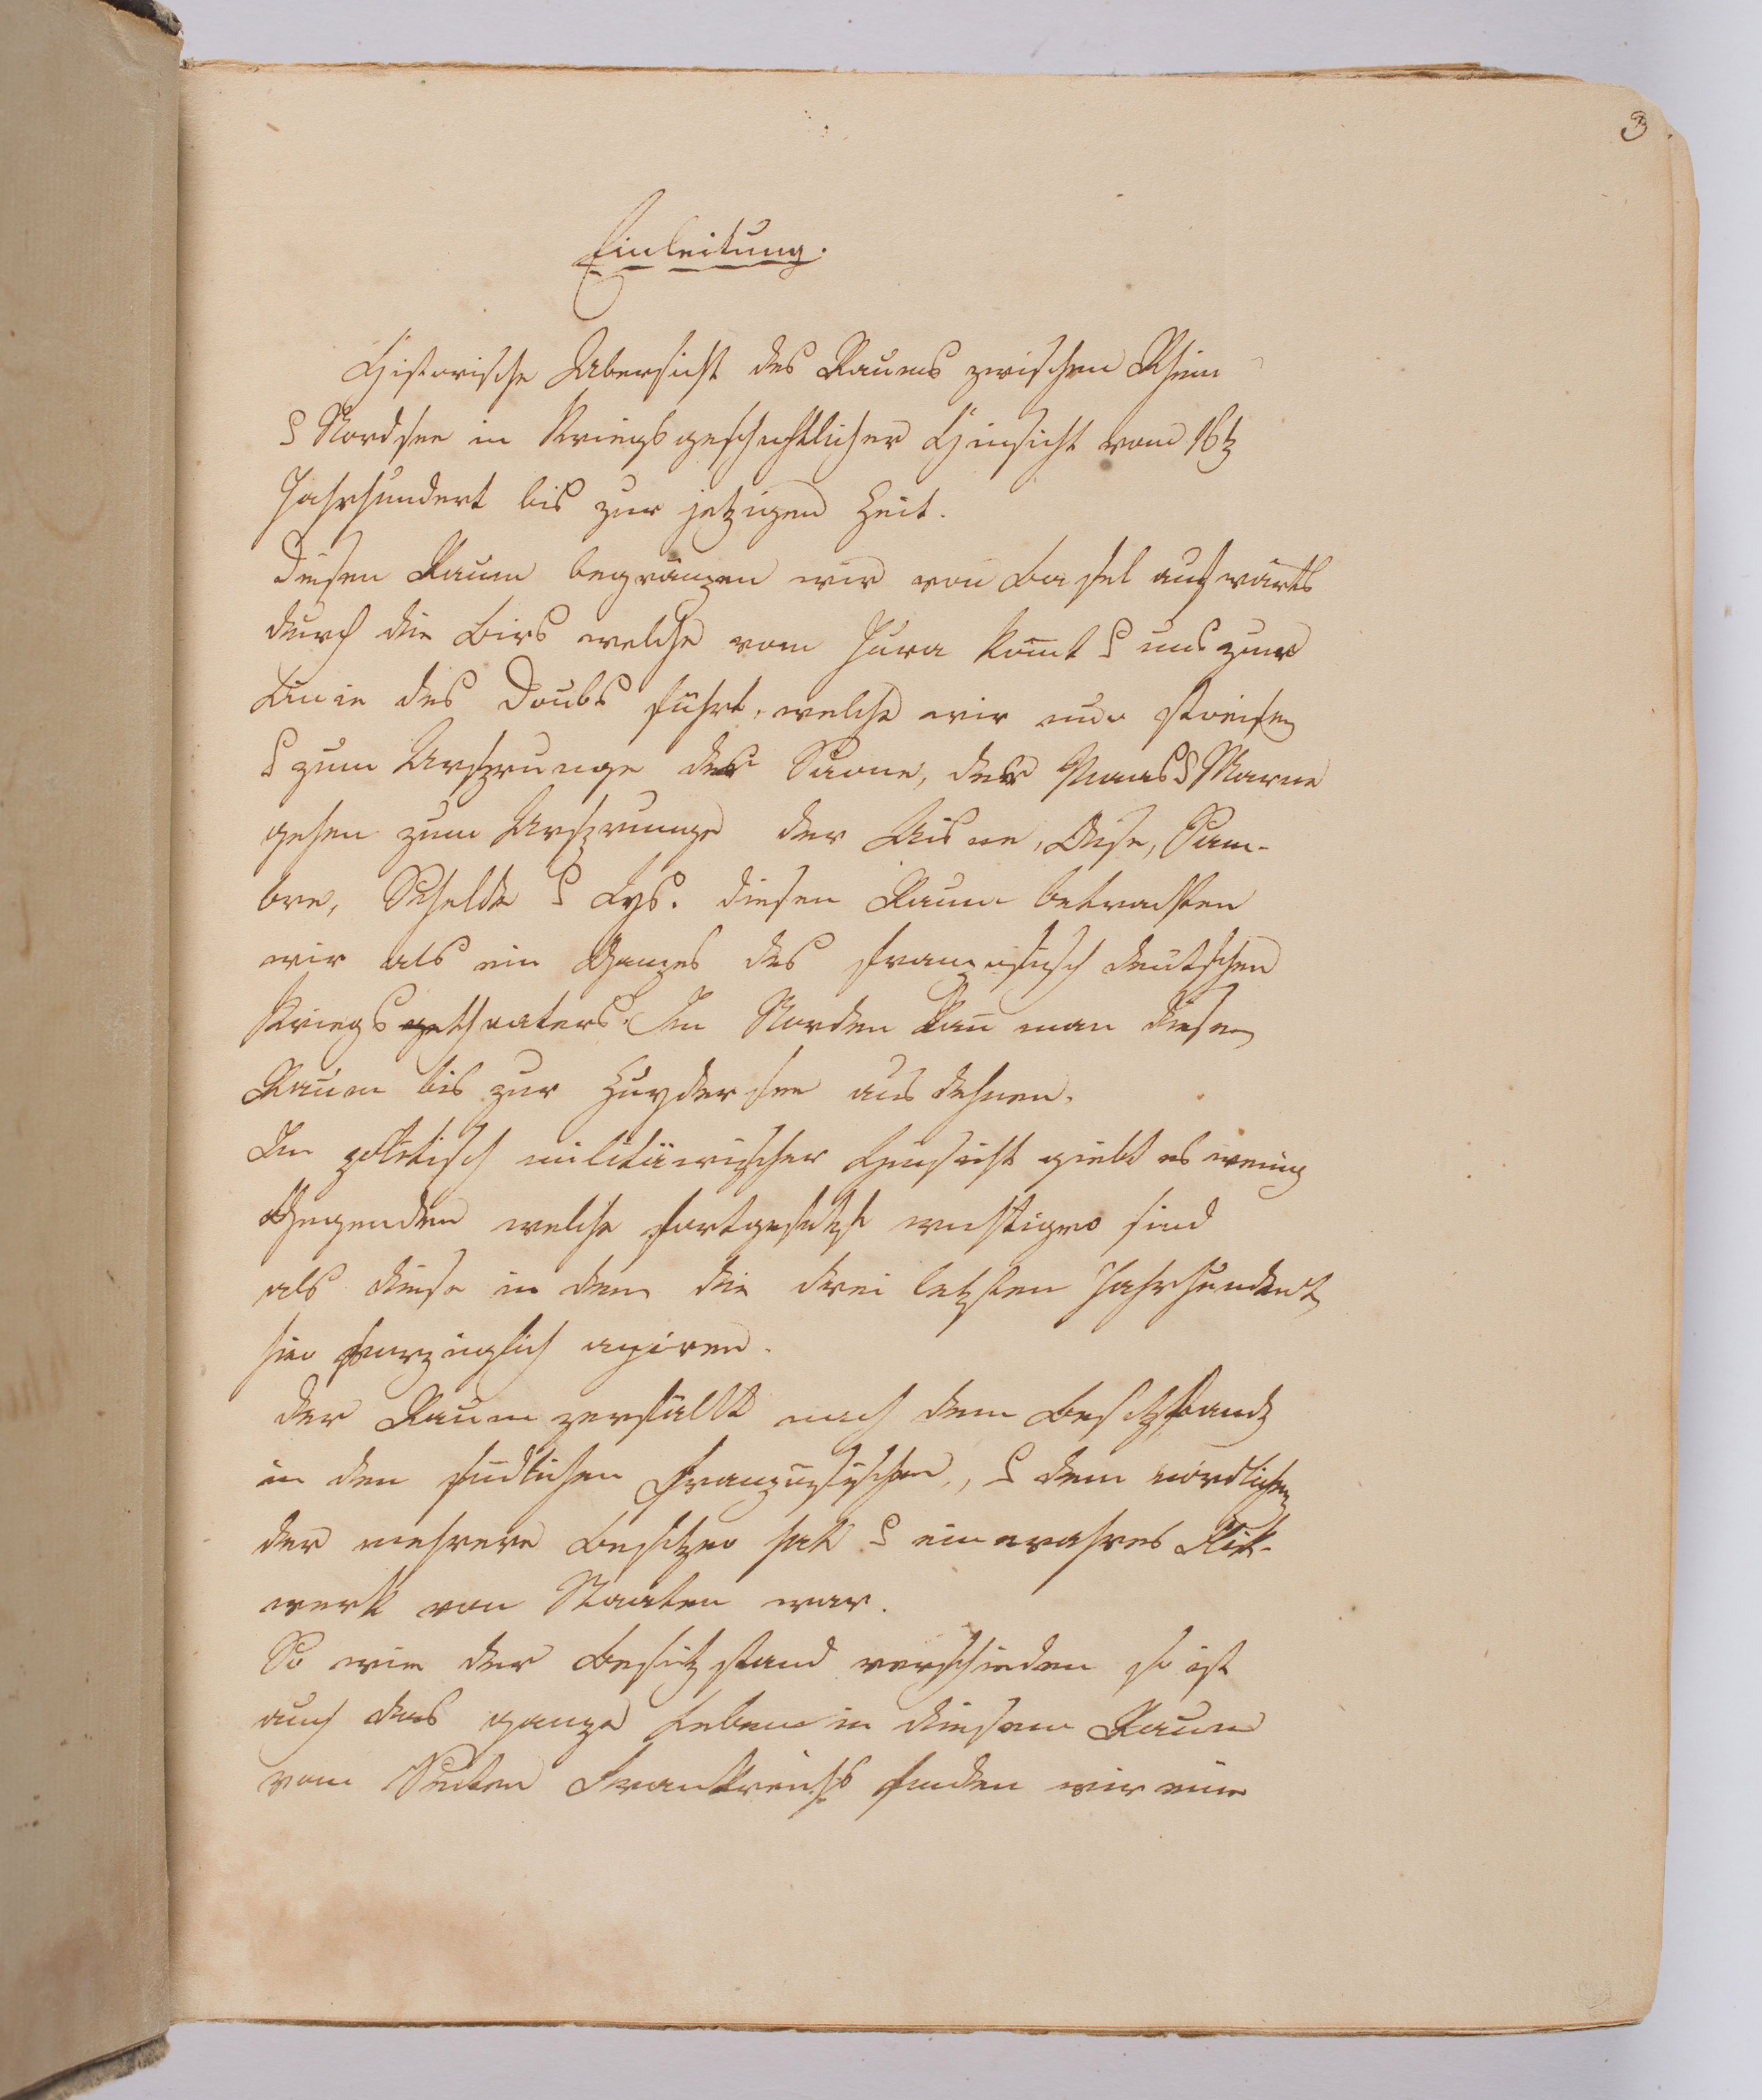 3
Einleitung.
Historische Übersicht des Raums zwischen Rhein
& Nordsee in Kriegsgeschichtlicher Hinsicht vom 16t
Jahrhundert bis zur jetzigen Zeit.
Diesen Raum begränzen wir von Basel aufwärts
durch die Birs welche vom Jura kom̄t & uns zur
Linie des Doubs führt, welche wir nur streifen
& zum Ursprunge der Saone, der Maas & Marne
gehen zum Ursprunge der Aisne, Oise, Sam-
bre, Schelde & Lys. Diesen Raum betrachten
wir als ein Ganzes des französisch deutschen
Kriegstheaters. Im Norden kan̄ man diesen
Raum bis zur Zuydersee ausdehnen.
In politisch militärischer Hinsicht giebt es wenig
Gegenden welche fortgesetzt wichtiger sind
als diese in dem die drei letzten Jahrhundert
hier agiren.
Der Raum zerfällt nach dem Besitzstand
in den südlichen französischen, & dem nördlichen
der mehrere Besitzer hat & ein wahres Flik-
werk von Staaten war.
So wie der Besitzstand verschieden so ist
auch das ganze Leben in diesem Raum
von Seiten Frankreichs finden wir eine